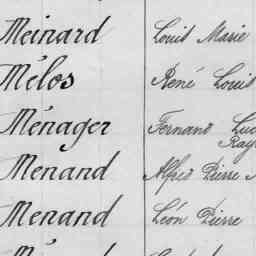 Meinard Louis Marie
Mélos René Louis
Ménager Fernand Luc
Ray
Menand Alfred Pierre
Menand Léon Pierre